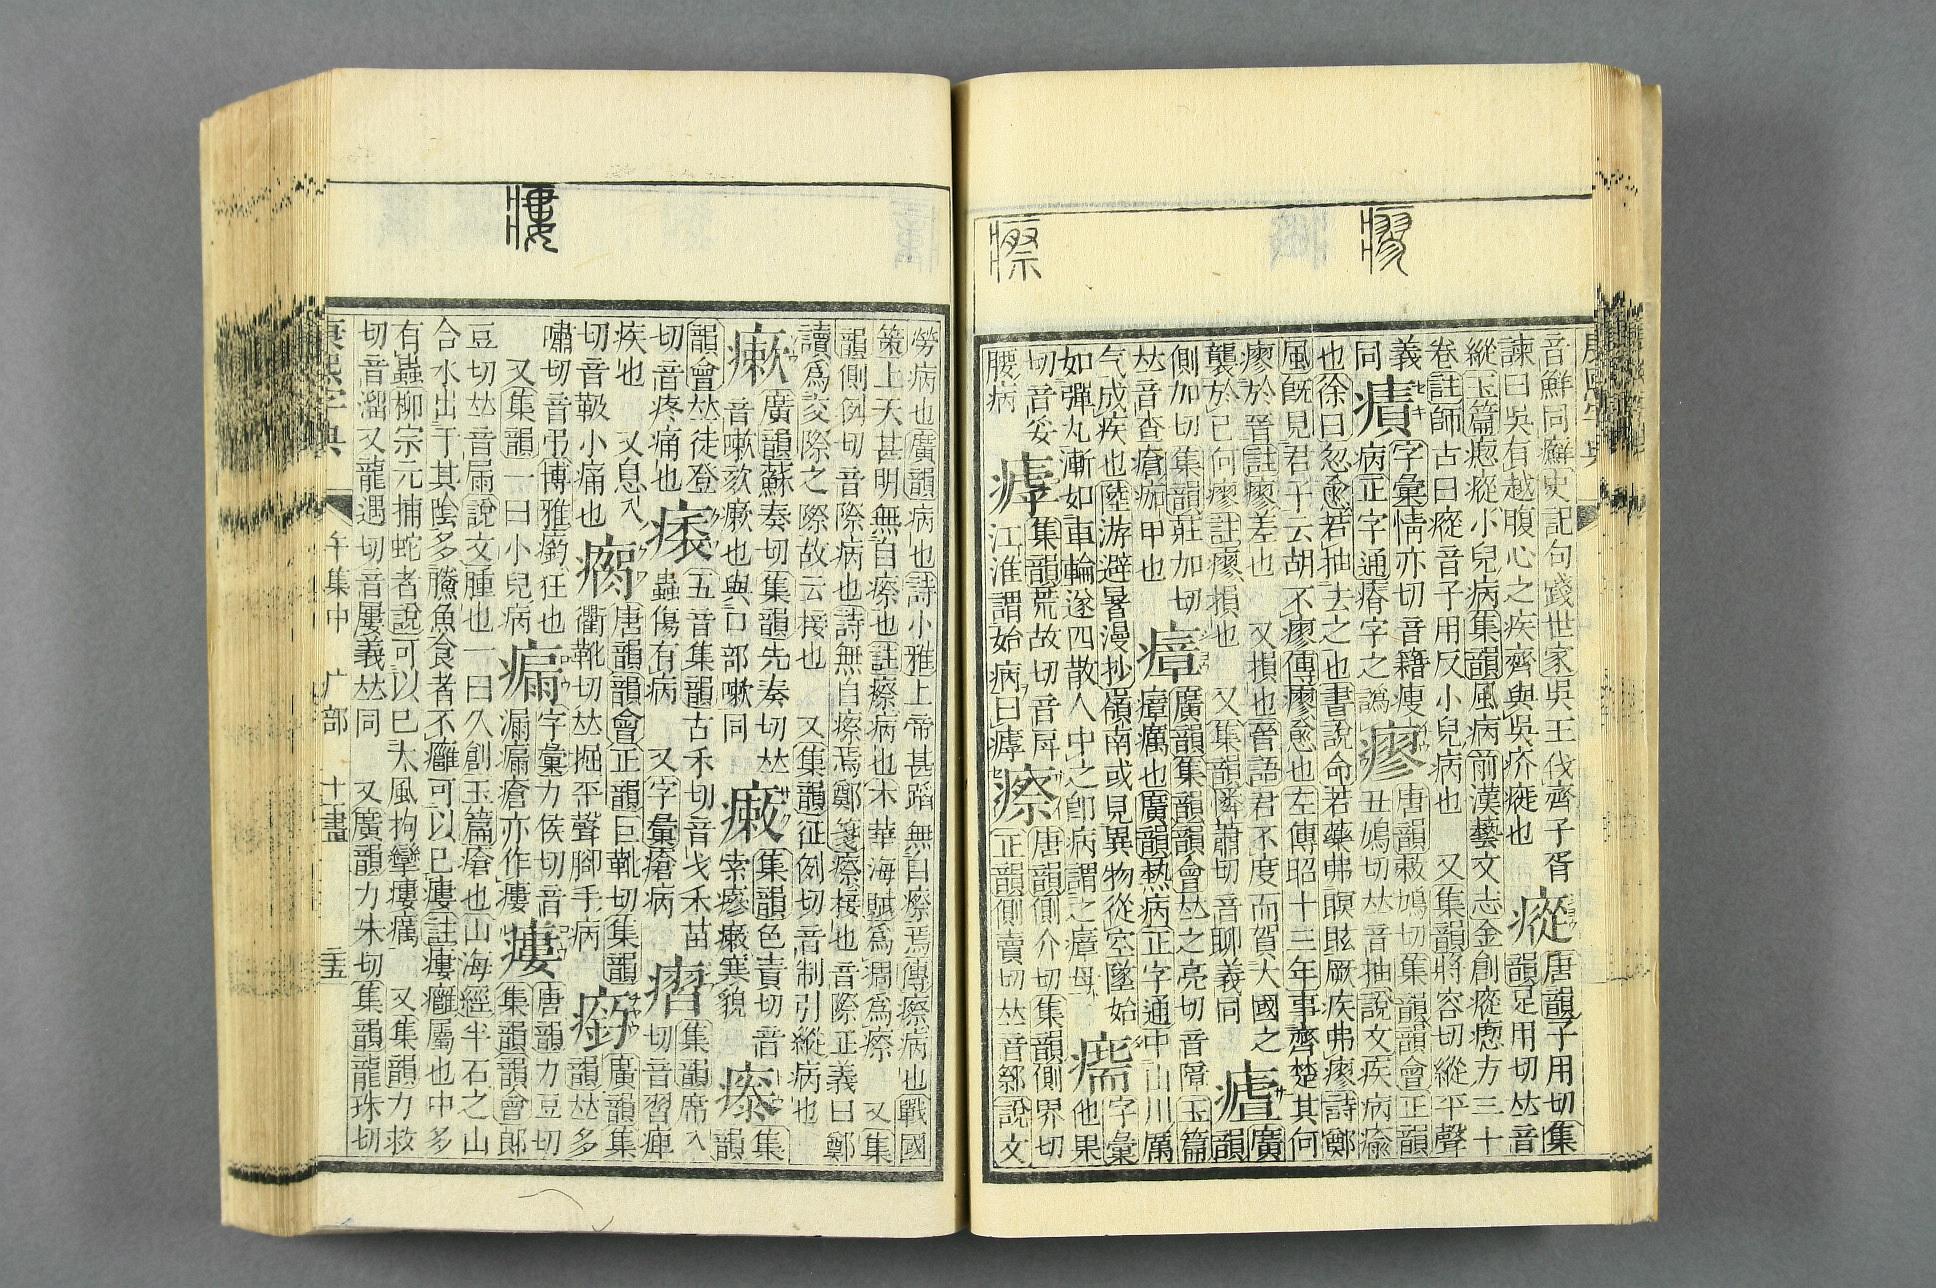 音鮮同癬史記句踐世家吳王伐齊子胥瘲唐韻子用切集
諫曰吳有越腹心之疾齊與吳疥癬也韻足用切𠀤音
縱玉篇瘛瘲小兒病集韻風病前漢藝文志金創瘲瘛方三十
卷註師古曰瘲音子用反小兒病也 又集韻將容切縱平聲
義字彙情亦切音籍瘦瘳唐韻敕鳩切集韻韻會正韻
同病正字通瘠字之譌丑鳩切𠀤音抽說文疾病瘉
也徐曰忽愈若抽去之也書說命若藥弗瞑眩厥疾弗瘳詩鄭
風旣見君子云胡不瘳傳瘳愈也左傳昭十三年事齊楚其何
瘳於晉註瘳差也 又損也晉語君不度而賀大國之廣
襲於己何瘳註瘳損也 又集韻隣蕭切音聊義同韻
側加切集韻莊加切瘴廣韻集韻韻會𠀤之亮切音障玉篇
𠀤音查瘡痂甲也瘴癘也廣韻熱病正字通中山川厲
气成疾也陸游避暑漫抄嶺南或見異物從空墜始字彙
如彈丸漸如車輪遂四散人中之卽病謂之瘴母他果
切音妥集韻荒故切音戽瘵唐韻側介切集韻側界切
腰病江淮謂始病曰正韻側賣切𠀤音鄒說文
勞病也廣韻病也詩小雅上帝甚蹈無自瘵焉傳瘵病也戰國
策上天甚明無自瘵也註瘵病也木華海賦爲爲瘵 又集
韻側例切音際病也詩無自瘵焉鄭箋瘵接也音際正義曰鄭
讀爲交際之際故云接也 又集韻征例切音制引縱病也
瘶廣韻蘇奏切集韻先奏切𠀤集韻色責切音集
音嗽欬瘶也與口部嗽同索瘮寒貌韻
韻會𠀤徒登五音集韻古禾切音戈禾苗瘤集韻席入
切音疼痛也蟲傷有病 又字彙瘡病切音習痺
疾也 又息入唐韻韻會正韻巨靴切集韻廣韻集
切音靸小痛也衢靴切𠀤掘平聲腳手病韻𠀤多
嘯切音弔博雅狂也字彙力侯切音瘻唐韻力豆切
又集韻一曰小兒病漏瘡亦作瘻集韻韻會郞
豆切𠀤音屚說文腫也一曰久創玉篇瘡也山海經半石之山
合水出于其陰多鰧魚食者不癰可以已瘻註瘻癰屬也中多
有蟲柳宗元捕蛇者說可以已大風拘攣瘻癘 又集韻力救
切音溜又龍遇切音屢義𠀤同 又廣韻力朱切集韻龍珠切
康熙字典 午集中 疒部 十一畫 三五